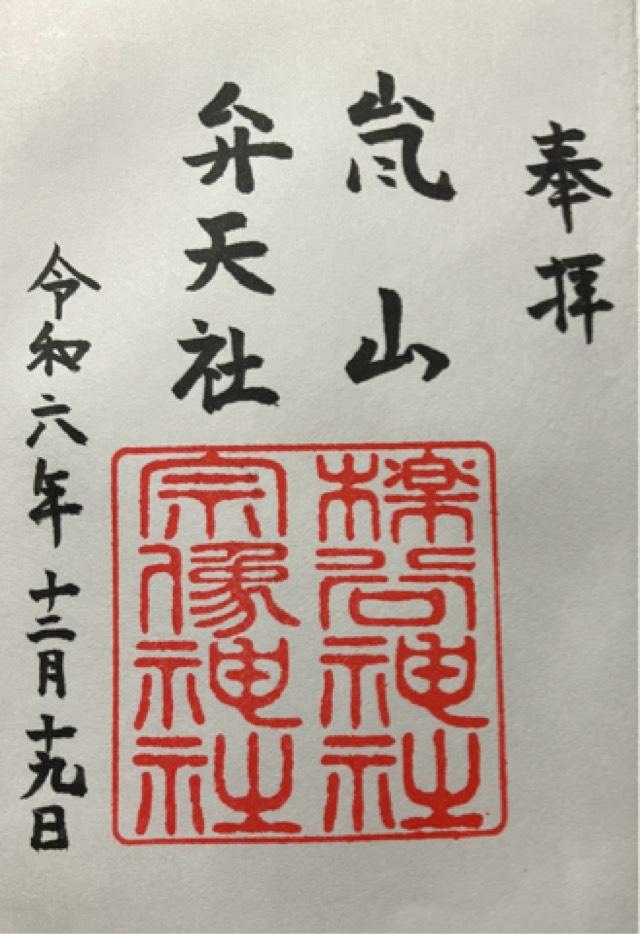 奉拝
嵐山
弁天社
櫟谷神社
宗像神社
令和六年十二月十九日